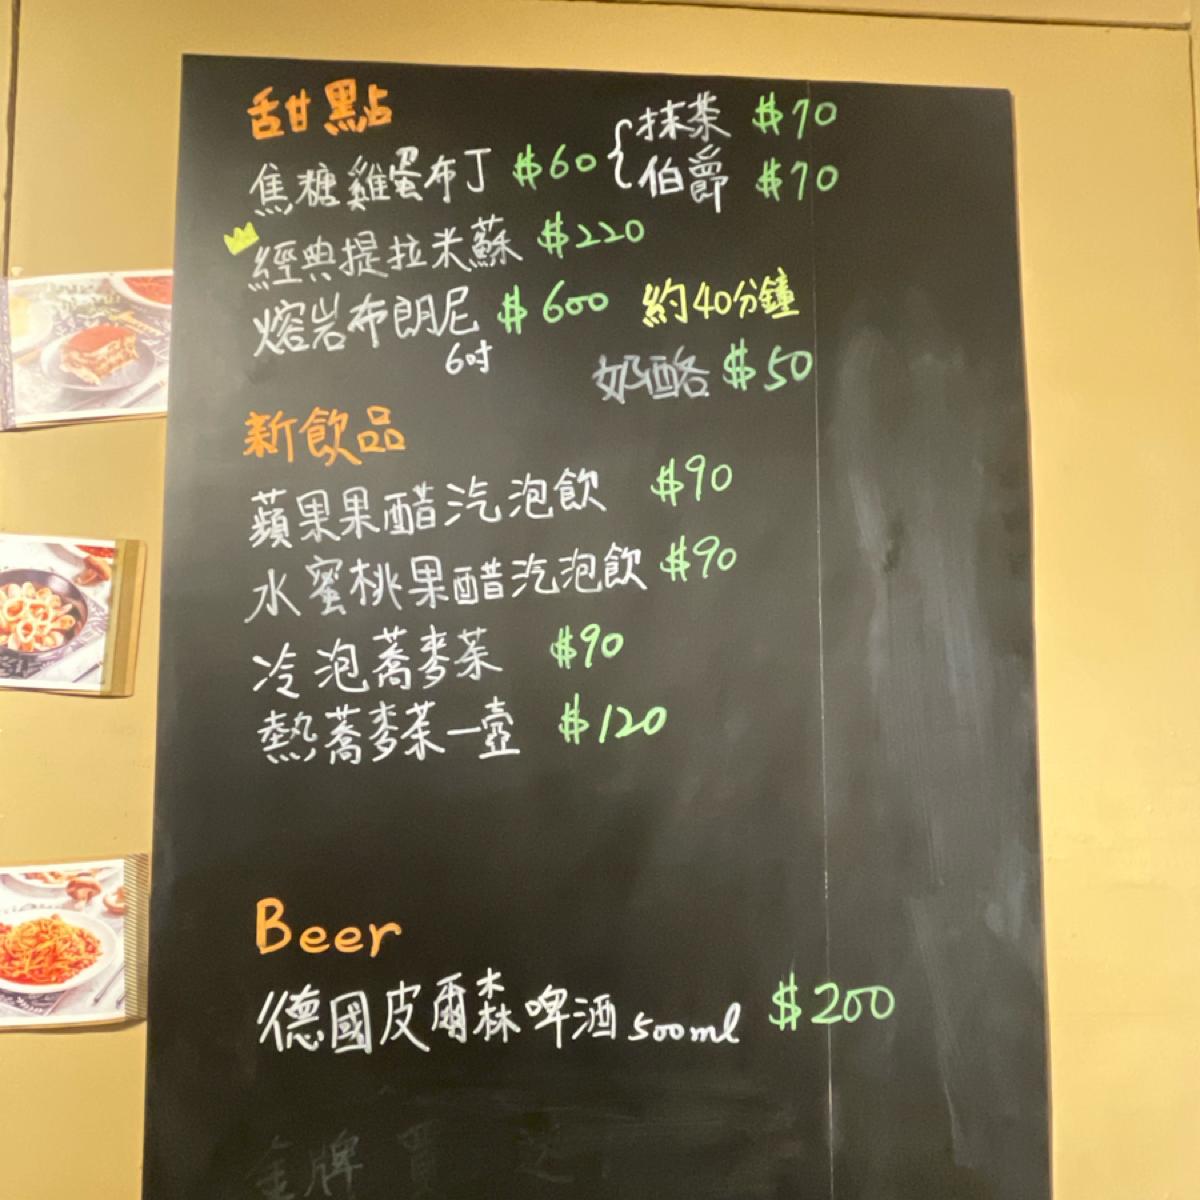 甜點
焦糖雞蛋布丁 $60 { 抹茶 $70
伯爵 $70
經典提拉米蘇 $220
熔岩布朗尼 $600 約40分鐘
6吋
奶酪 $50
新飲品
蘋果果醋汽泡飲 $90
水蜜桃果醋汽泡飲 $90
冷泡蕎麥茶 $90
熱蕎麥茶一壺 $120
Beer
德國皮爾森啤酒 500ml $200
金牌 買 送